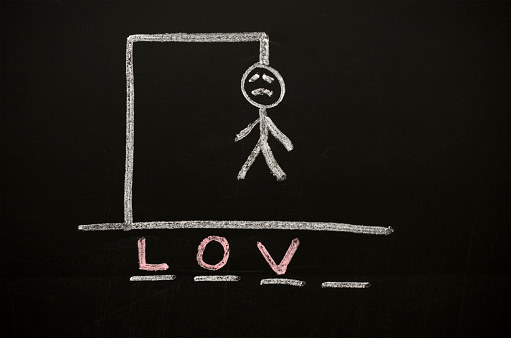 L O V _